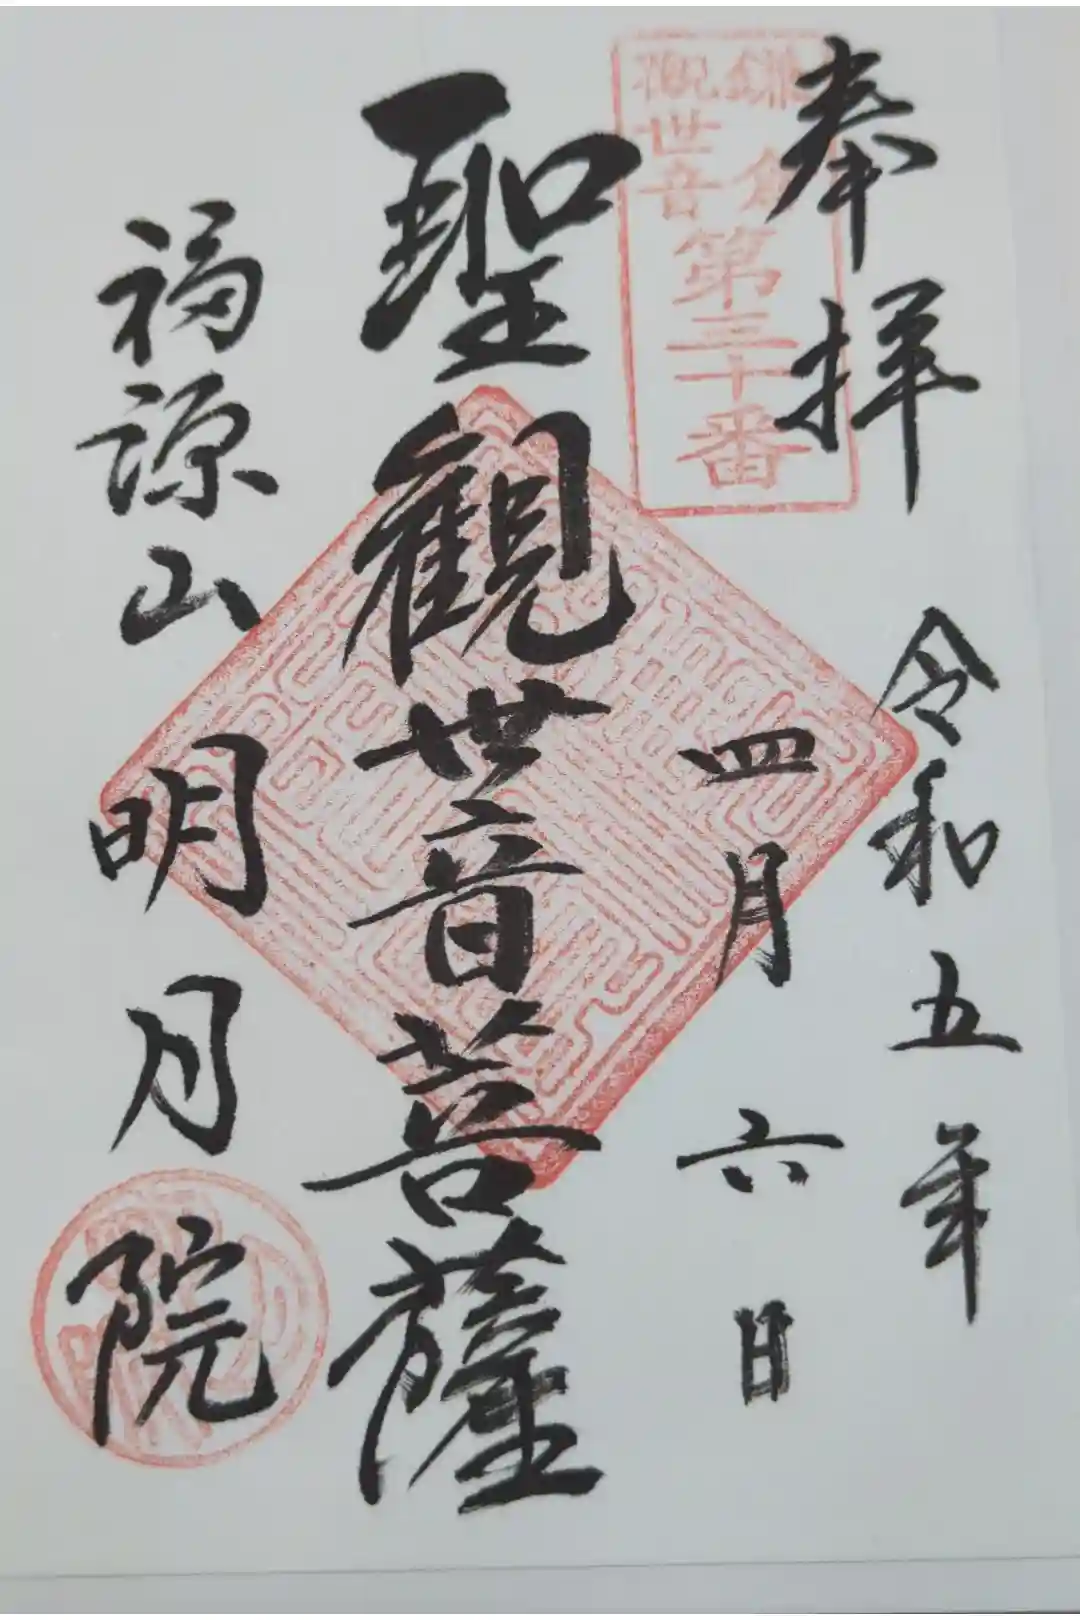 奉拝
令和五年
四月六日
鎌倉
観世音
第三十番
聖観世音菩薩
福源山
明月院